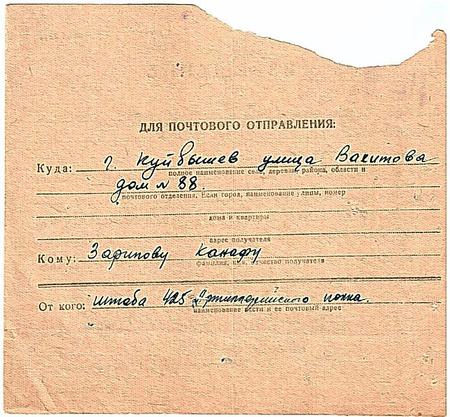 ДЛЯ ПОЧТОВОГО ОТПРАВЛЕНИЯ:
Куда: г. Куйбышев улица Вахитова
полное наименование села, деревни, района, области и
дом № 88.
почтового отделения. Если город, наименование улицы, номер
дома и квартиры
адрес получателя
Кому: Зарипову Ханафу
фамилия, имя, отчество получателя
От кого: штаба 425 Артиллерийского полка.
наименование части и ее почтовый адрес